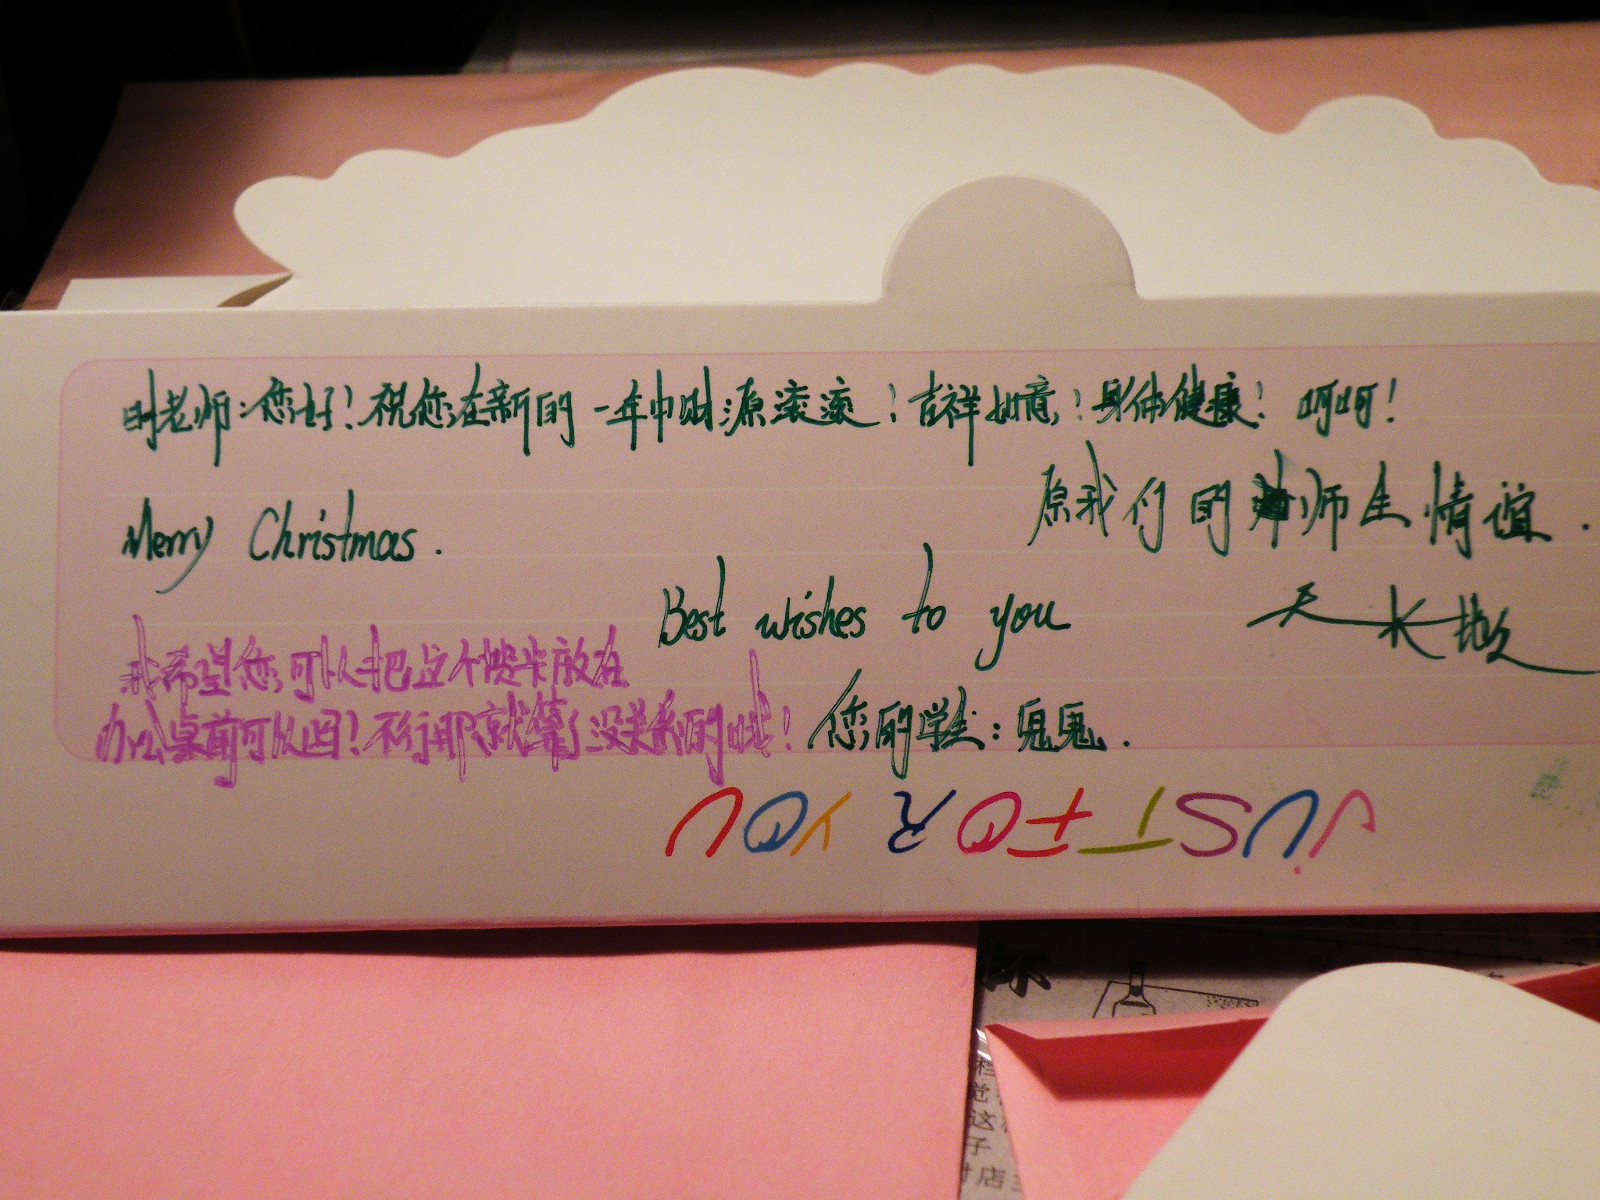 时老师:您好!祝您在新的一年中财源滚滚!吉祥如意!身体健康!呵呵!
原我们的师生情谊.
Merry Christmas.
天长地久
Best wishes to you
我希望您可以把这个贺卡放在
办公桌前可以吗?不行那就算了没关系的哦!
您的学生:鬼鬼.
JUST FOR YOU